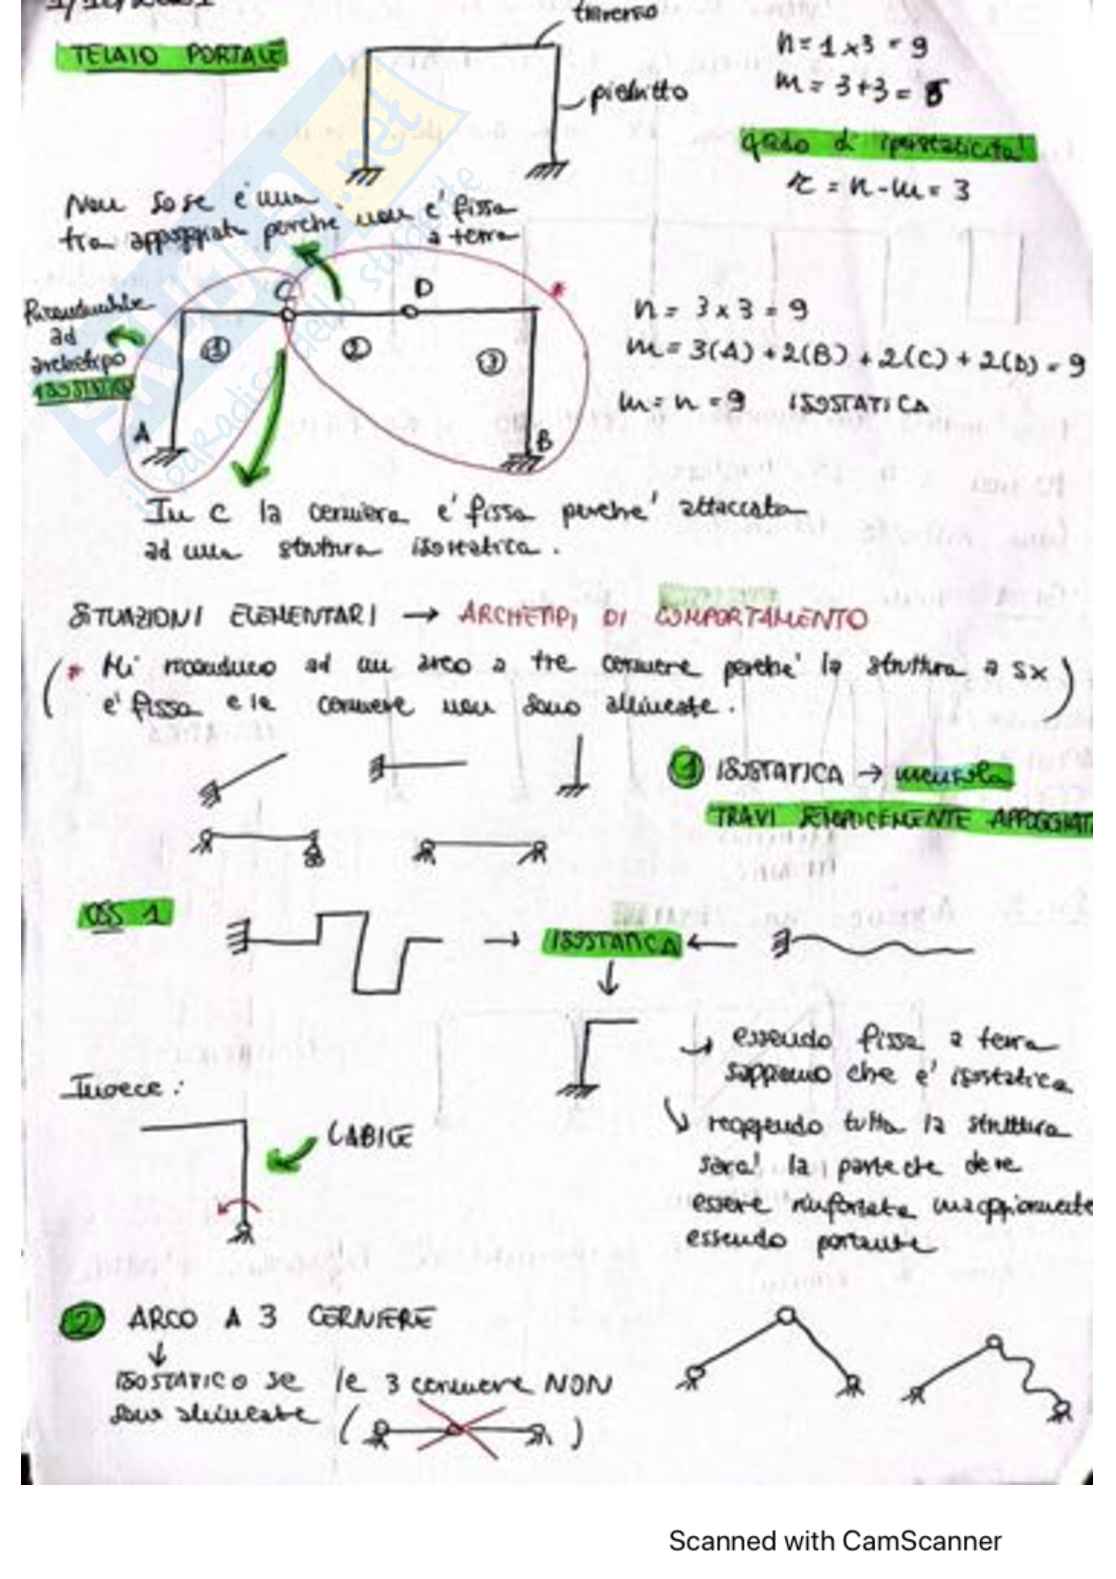 TELAIO PORTALE
traverso
piedritto
n = 1 x 3 = 9
m = 3+3 = 6
grado di iperstaticita'
r = n - m = 3
Non so se e' una
trave appoggiata perche' non e' fissa
a terra
C
D
Riconducibile
ad
archetipo
ISOSTATICO
1
2
3
A
B
n = 3 x 3 = 9
m = 3(A) + 2(B) + 2(C) + 2(D) = 9
m = n = 9 ISOSTATICA
In C la cerniera e' fissa perche' attaccata
ad una struttura isostatica.
SITUAZIONI ELEMENTARI → ARCHETIPI DI COMPORTAMENTO
( * Mi riconduco ad un arco a tre cerniere perche' la struttura a sx )
e' fissa e le cerniere non sono allineate.
1 ISOSTATICA → mensola
TRAVI SEMPLICEMENTE APPOGGIATE
OSS 1
→ ISOSTATICA ←
↓
→ essendo fissa a terra
sappiamo che e' isostatica
Invece:
LABILE
↘ reggendo tutta la struttura
sara' la parte che deve
essere rinforzata maggiormente
essendo portante
2 ARCO A 3 CERNIERE
↓
ISOSTATICO se le 3 cerniere NON
sono allineate ( )
Scanned with CamScanner